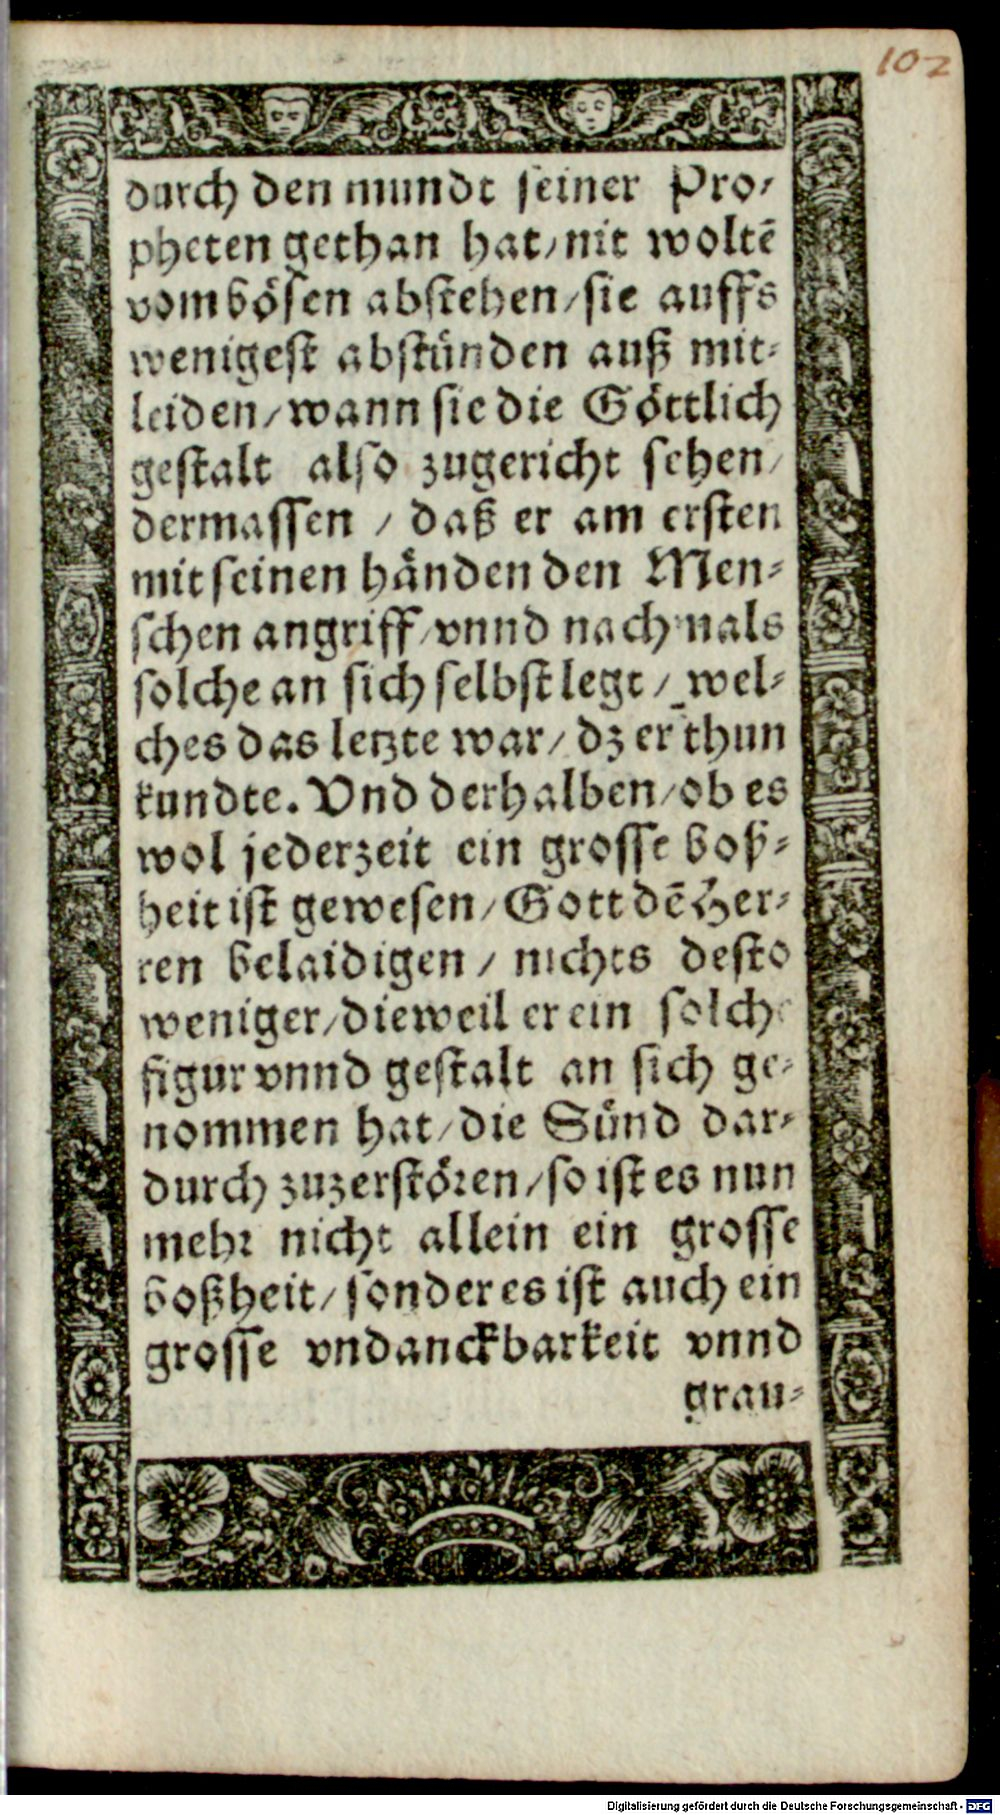 102
durch den mundt seiner Pro-
pheten gethan hat/nit woltẽ
vom bösen abstehen/sie auffs
wenigest abstünden auß mit-
leiden/wann sie die Göttlich
gestalt also zugericht sehen/
dermassen / daß er am ersten
mit seinen händen den Men-
schen angriff/vnnd nachmals
solche an sich selbst legt/ wel-
ches das letzte war/ dz er thun
kundte. Vnd derhalben/ob es
wol jederzeit ein grosse boß-
heit ist gewesen/Gott dẽ Her-
ren belaidigen/ nichts desto
weniger/dieweil er ein solche
figur vnnd gestalt an sich ge-
nommen hat/die Sünd dar-
durch zuzerstören/so ist es nun
mehr nicht allein ein grosse
boßheit/sonder es ist auch ein
grosse vndanckbarkeit vnnd
grau-
Digitalisierung gefördert durch die Deutsche Forschungsgemeinschaft - DFG